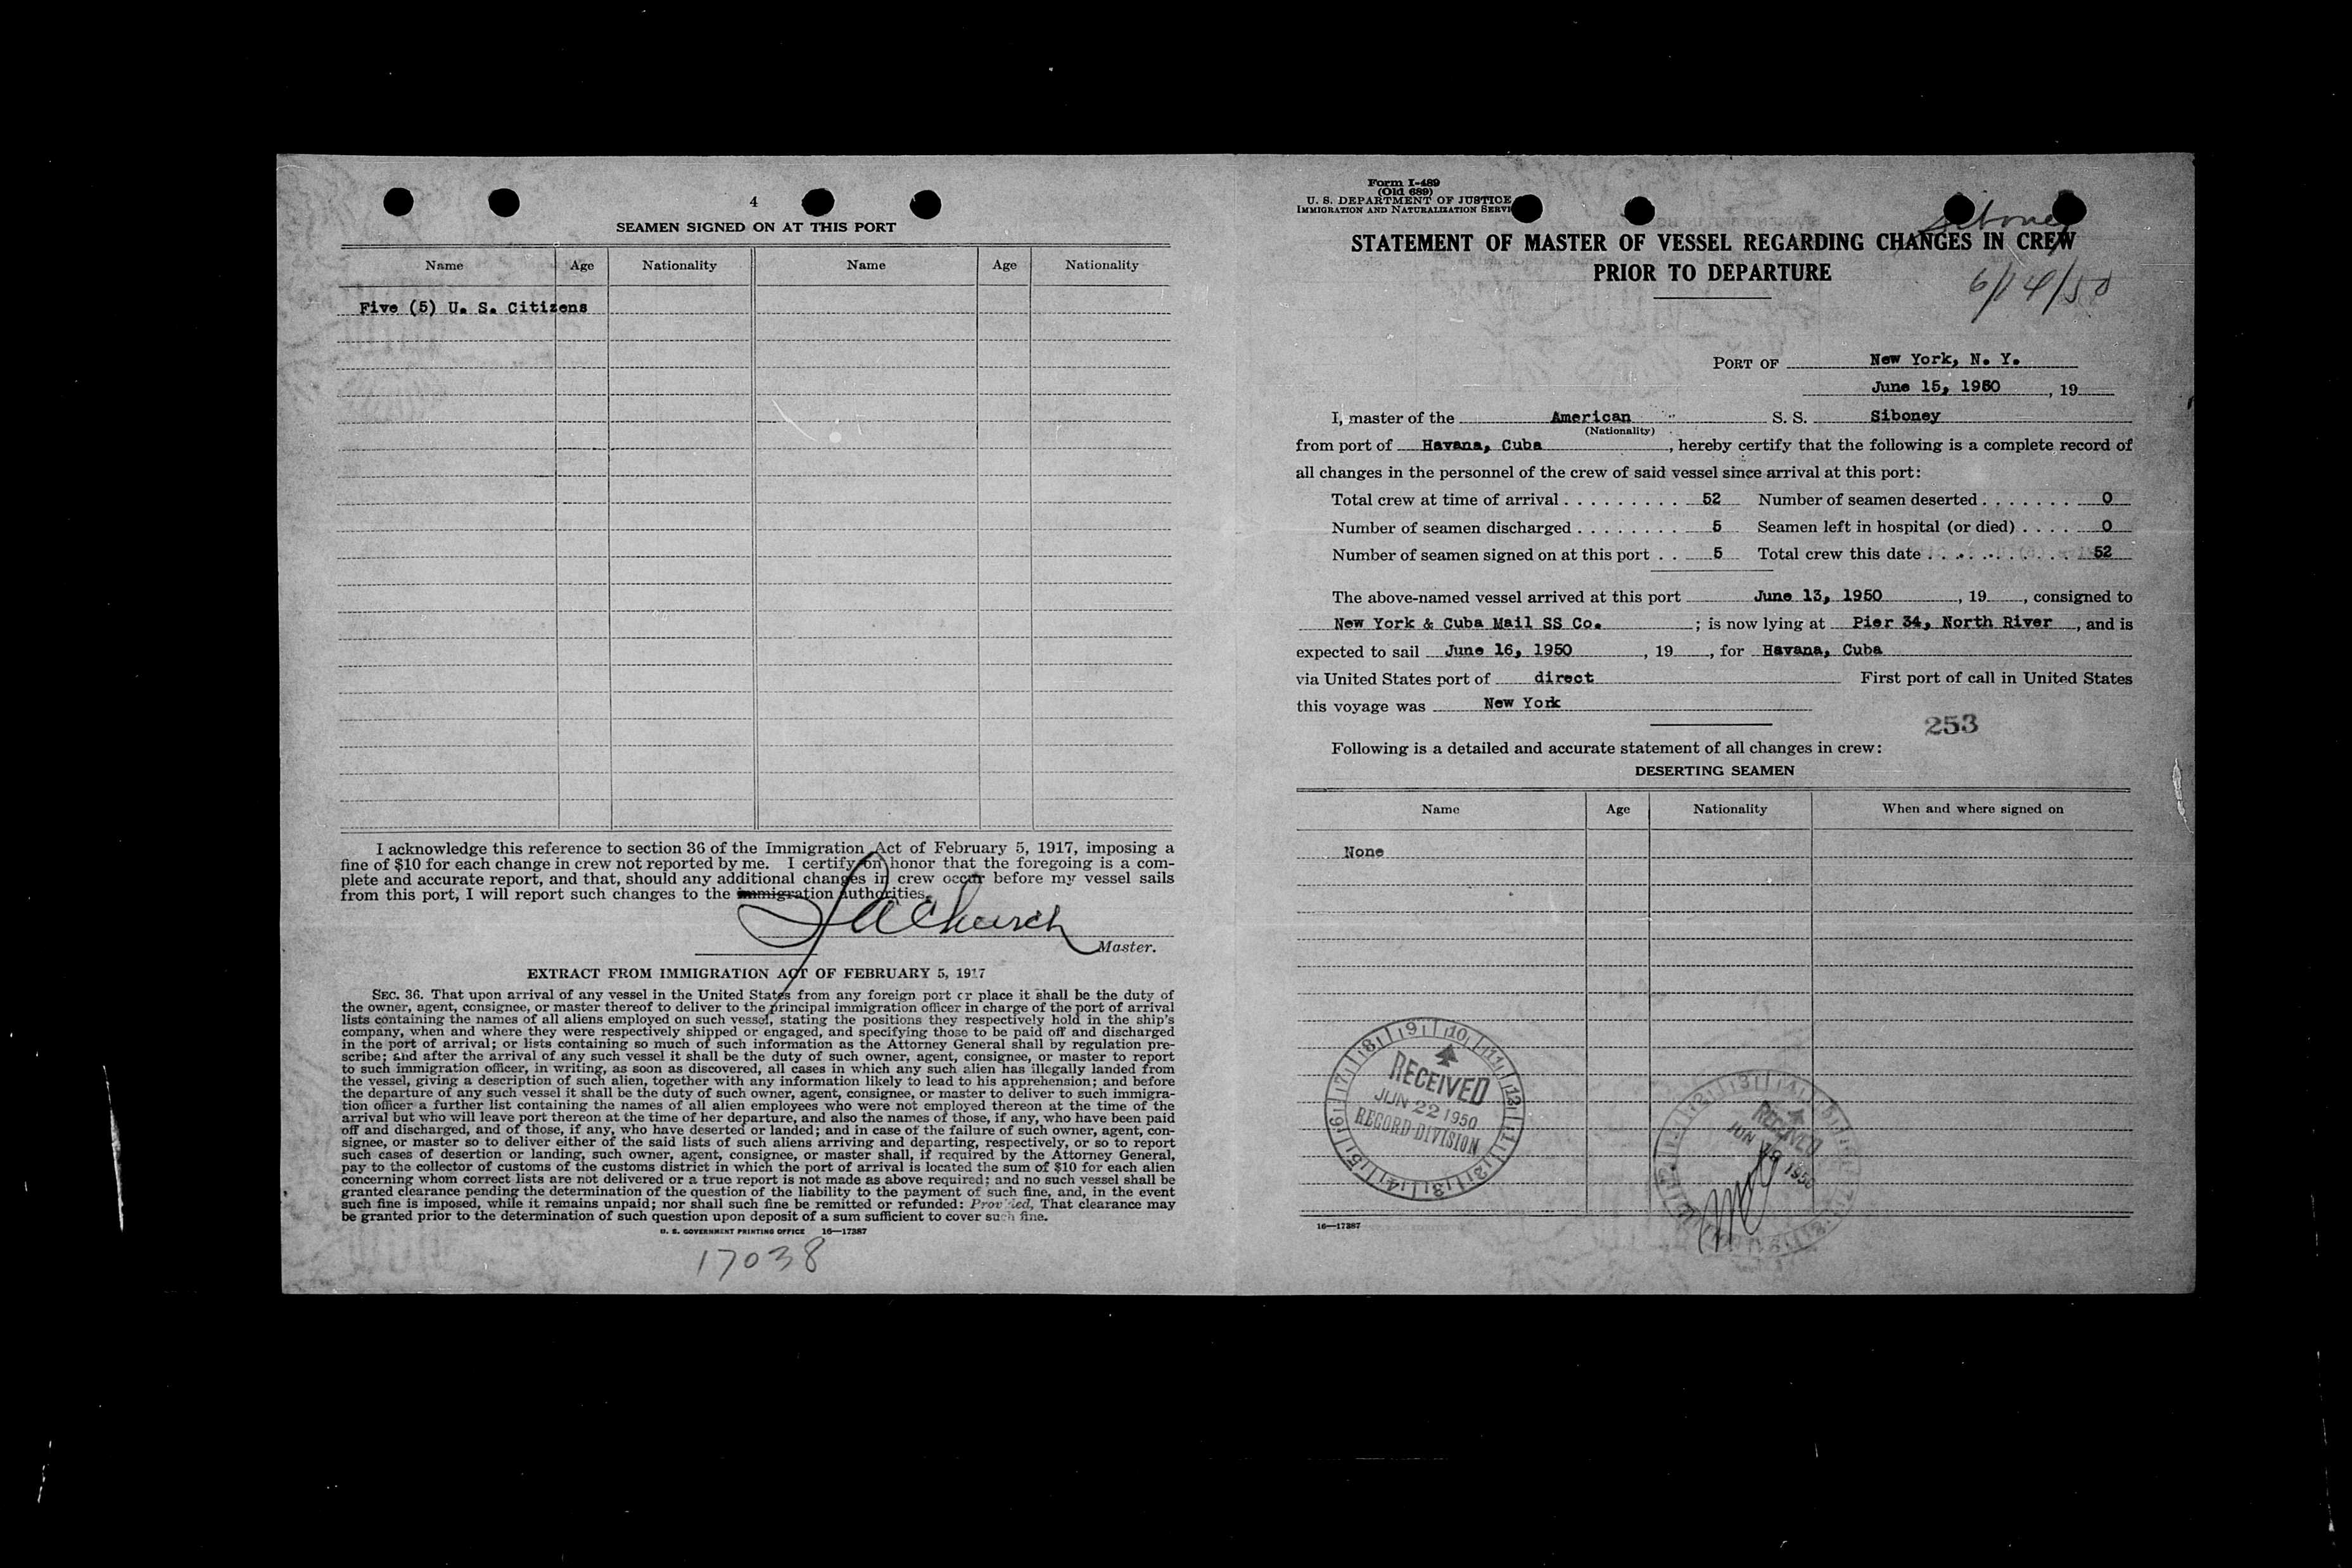 4
SEAMEN SIGNED ON AT THIS PORT
Name Age Nationality Name Age Nationality
Five (5) U. S. Citizens
I acknowledge this reference to section 36 of the Immigration Act of February 5, 1917, imposing a
fine of $10 for each change in crew not reported by me. I certify on honor that the foregoing is a com-
plete and accurate report, and that, should any additional changes in crew occur before my vessel sails
from this port, I will report such changes to the immigration authorities.
Church
Master.
EXTRACT FROM IMMIGRATION ACT OF FEBRUARY 5, 1917
SEC. 36. That upon arrival of any vessel in the United States from any foreign port or place it shall be the duty of
the owner, agent, consignee, or master thereof to deliver to the principal immigration officer in charge of the port of arrival
lists containing the names of all aliens employed on such vessel, stating the positions they respectively hold in the ship's
company, when and where they were respectively shipped or engaged, and specifying those to be paid off and discharged
in the port of arrival; or lists containing so much of such information as the Attorney General shall by regulation pre-
scribe; and after the arrival of any such vessel it shall be the duty of such owner, agent, consignee, or master to report
to such immigration officer, in writing, as soon as discovered, all cases in which any such alien has illegally landed from
the vessel, giving a description of such alien, together with any information likely to lead to his apprehension; and before
the departure of any such vessel it shall be the duty of such owner, agent, consignee, or master to deliver to such immigra-
tion officer a further list containing the names of all alien employees who were not employed thereon at the time of the
arrival but who will leave port thereon at the time of her departure, and also the names of those, if any, who have been paid
off and discharged, and of those, if any, who have deserted or landed; and in case of the failure of such owner, agent, con-
signee, or master so to deliver either of the said lists of such aliens arriving and departing, respectively, or so to report
such cases of desertion or landing, such owner, agent, consignee, or master shall, if required by the Attorney General,
pay to the collector of customs of the customs district in which the port of arrival is located the sum of $10 for each alien
concerning whom correct lists are not delivered or a true report is not made as above required; and no such vessel shall be
granted clearance pending the determination of the question of the liability to the payment of such fine, and, in the event
such fine is imposed, while it remains unpaid; nor shall such fine be remitted or refunded: Provided, That clearance may
be granted prior to the determination of such question upon deposit of a sum sufficient to cover such fine.
U. S. GOVERNMENT PRINTING OFFICE 16—17387
17038
Form I-489
(Old 689)
U. S. DEPARTMENT OF JUSTICE
IMMIGRATION AND NATURALIZATION SERVI
Siboney
STATEMENT OF MASTER OF VESSEL REGARDING CHANGES IN CREW
PRIOR TO DEPARTURE
6/14/50
PORT OF New York, N. Y.
June 15, 1950, 19
I, master of the American S. S. Siboney
(Nationality)
from port of Havana, Cuba, hereby certify that the following is a complete record of
all changes in the personnel of the crew of said vessel since arrival at this port:
Total crew at time of arrival 52 Number of seamen deserted 0
Number of seamen discharged 5 Seamen left in hospital (or died) 0
Number of seamen signed on at this port 5 Total crew this date 52
The above-named vessel arrived at this port June 13, 1950, 19, consigned to
New York & Cuba Mail SS Co. ; is now lying at Pier 34, North River, and is
expected to sail June 16, 1950, 19, for Havana, Cuba
via United States port of direct First port of call in United States
this voyage was New York
253
Following is a detailed and accurate statement of all changes in crew:
DESERTING SEAMEN
Name Age Nationality When and where signed on
None
RECEIVED
JUN 22 1950
RECORD DIVISION
RECEIVED
JUN 1950
16—17387